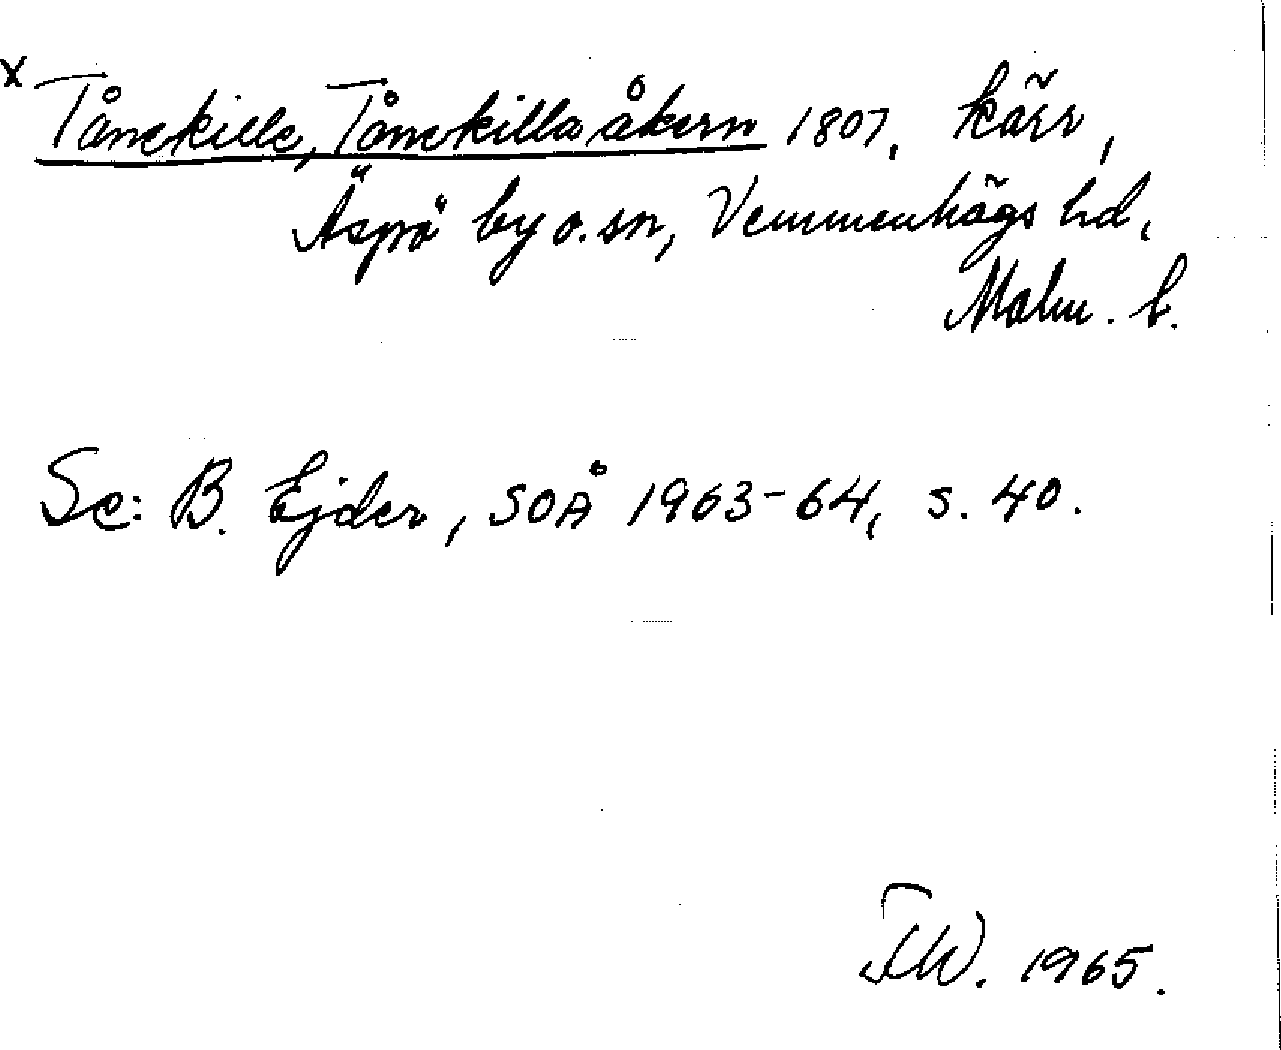 x Tånekille, Tånekilla åkern 1807, kärr,
Äspö by o. sn, Vemmenhögs hd,
Malm. l.
Se: B. Ejder, SOÅ 1963-64, s. 40.
F.W. 1965.